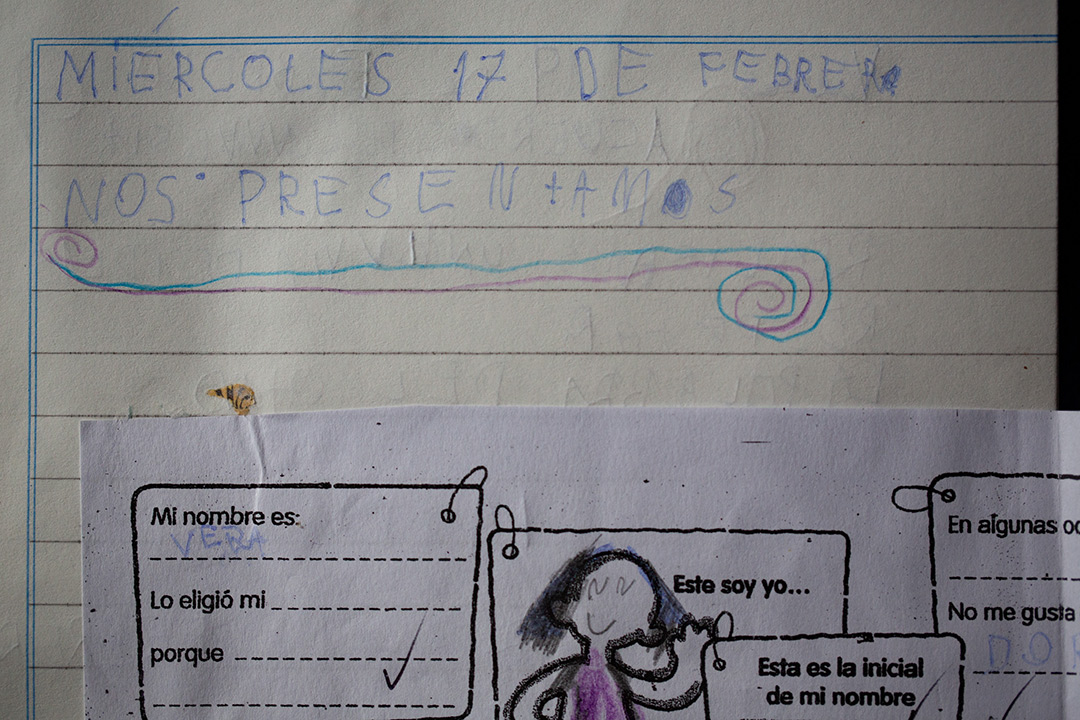 MIÉRCOLES 17 DE FEBRER
NOS PRESENTAMOS
Mi nombre es:
VERA
Lo eligió mi
porque
Este soy yo...
Esta es la inicial
de mi nombre
En algunas
No me gusta